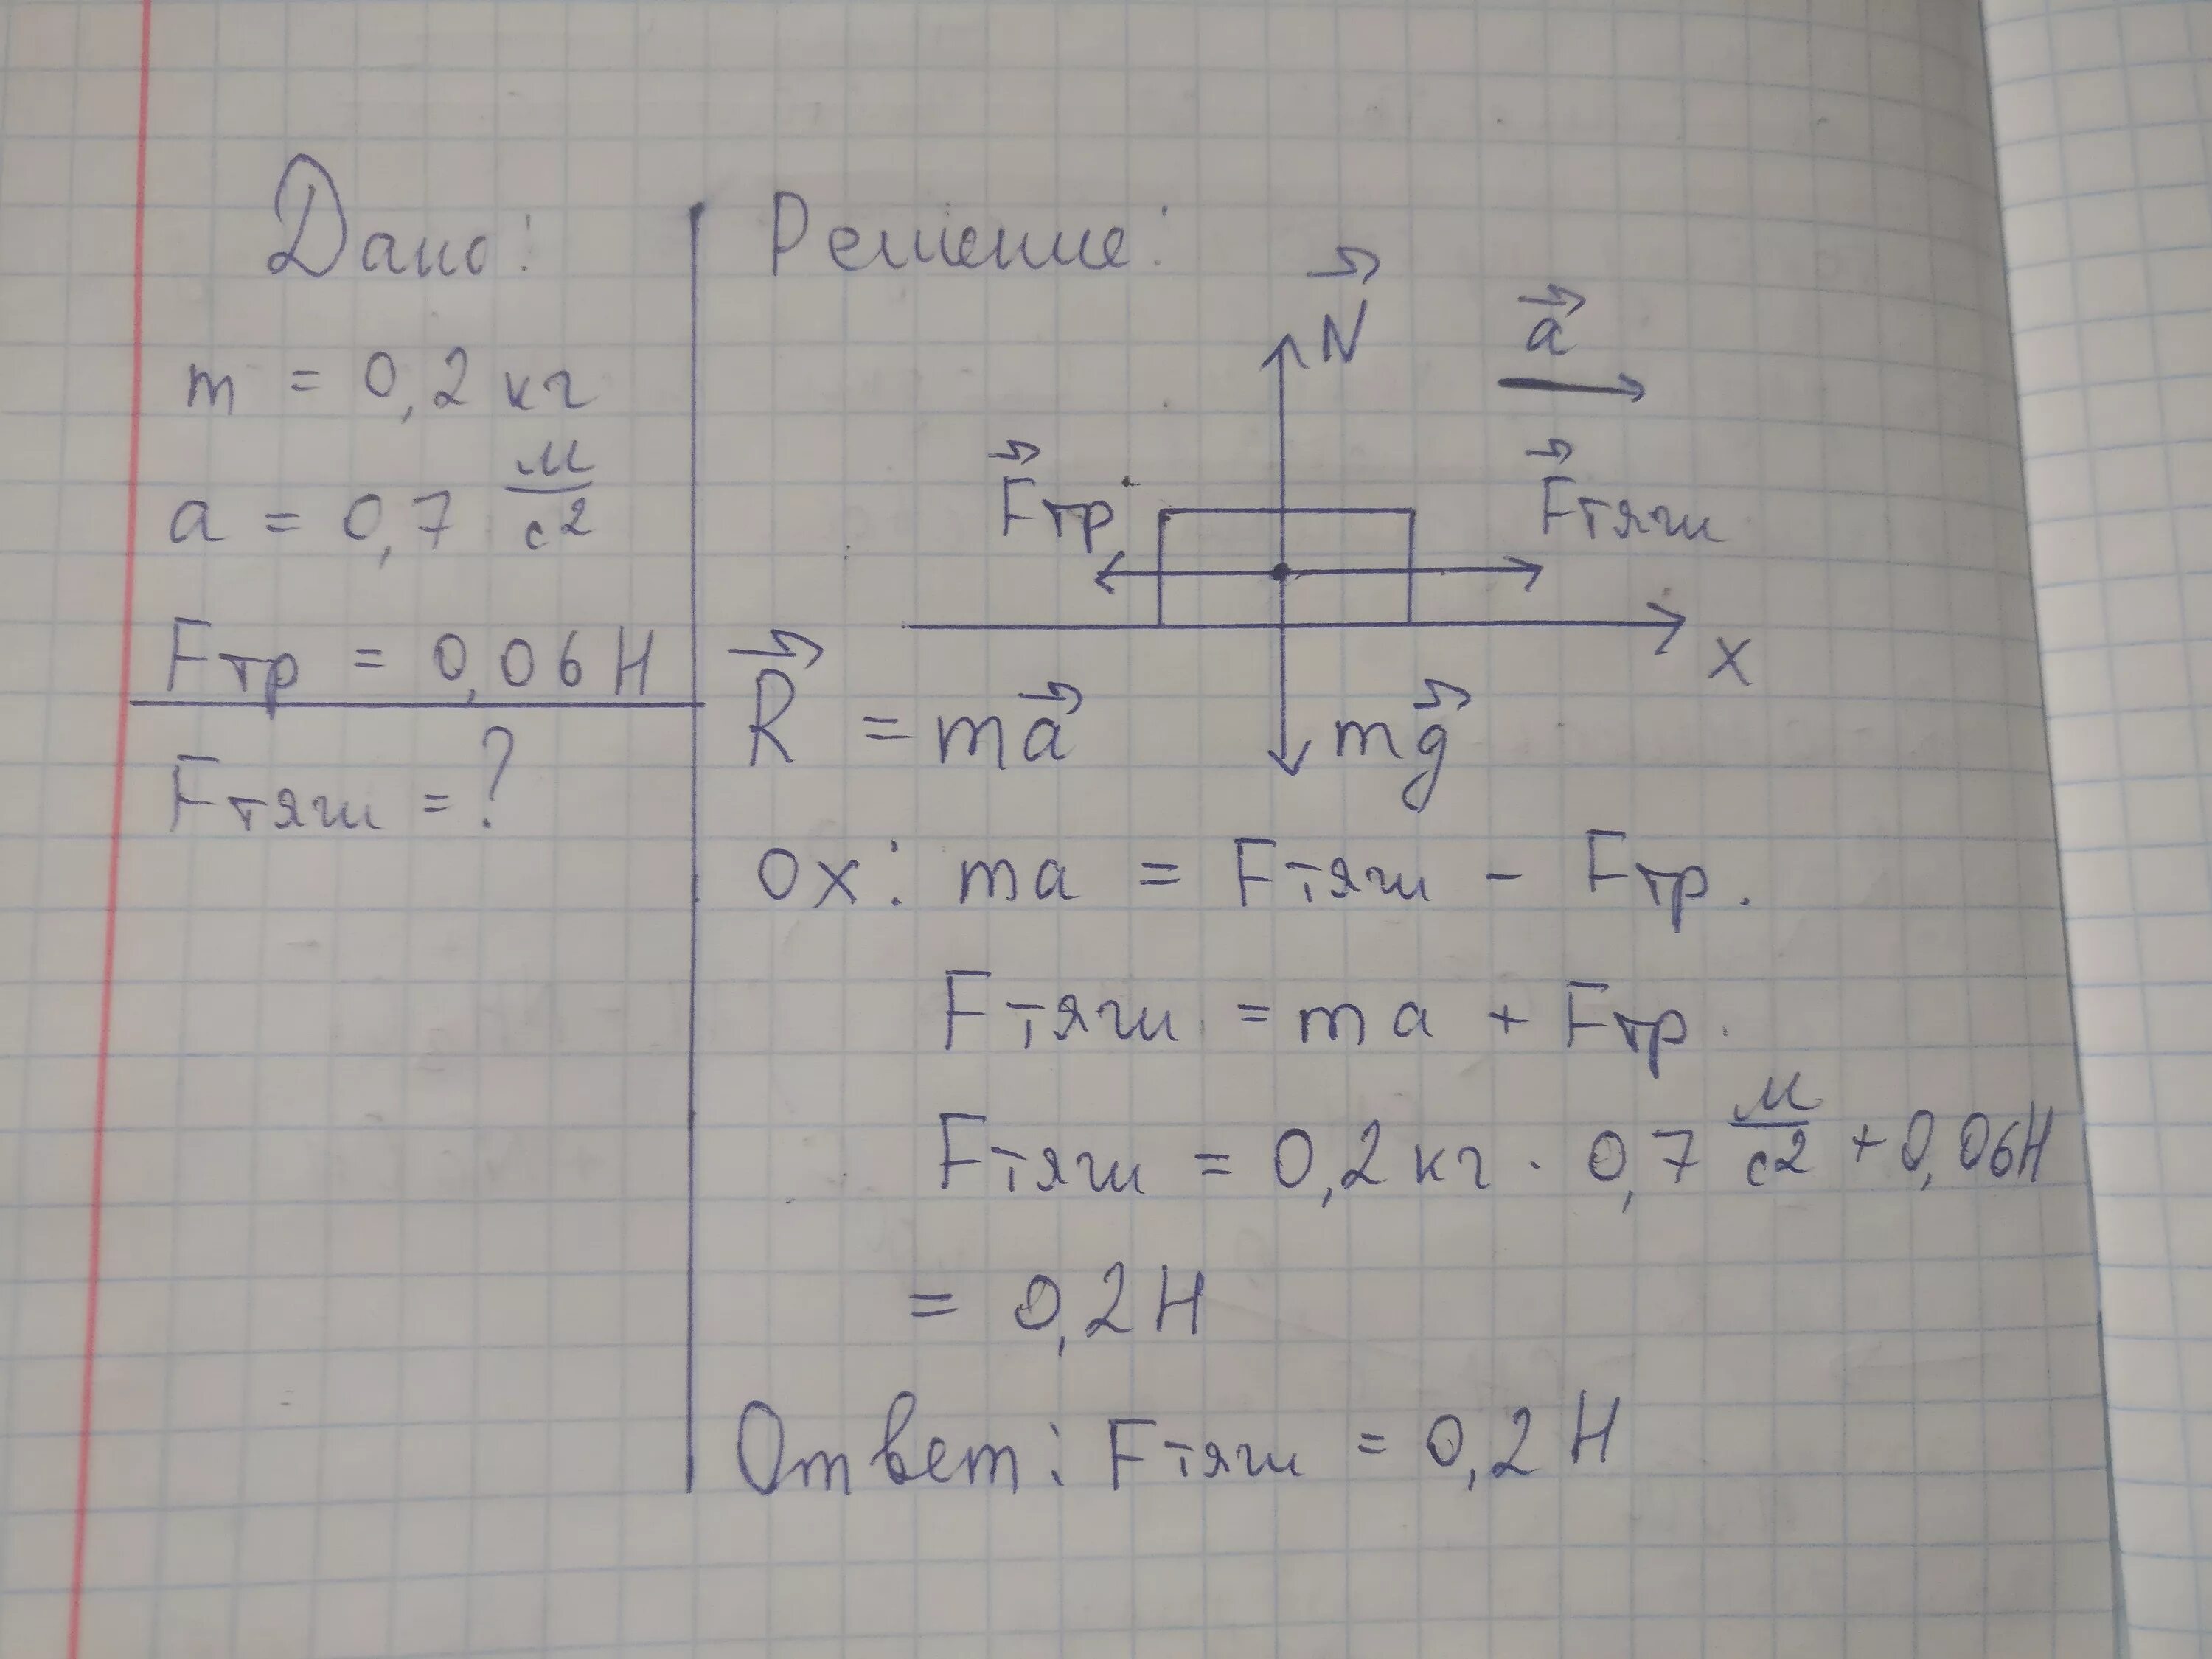 Дано:
m = 0,2 кг
a = 0,7 м/с2
Fтр = 0,06 Н
Fтяги = ?
Решение:
N
a
Fтр
Fтяги
x
mg
R = ma
ox: ma = Fтяги - Fтр.
Fтяги = ma + Fтр.
Fтяги = 0,2 кг · 0,7 м/с2 + 0,06Н
= 0,2 Н
Ответ: Fтяги = 0,2 Н